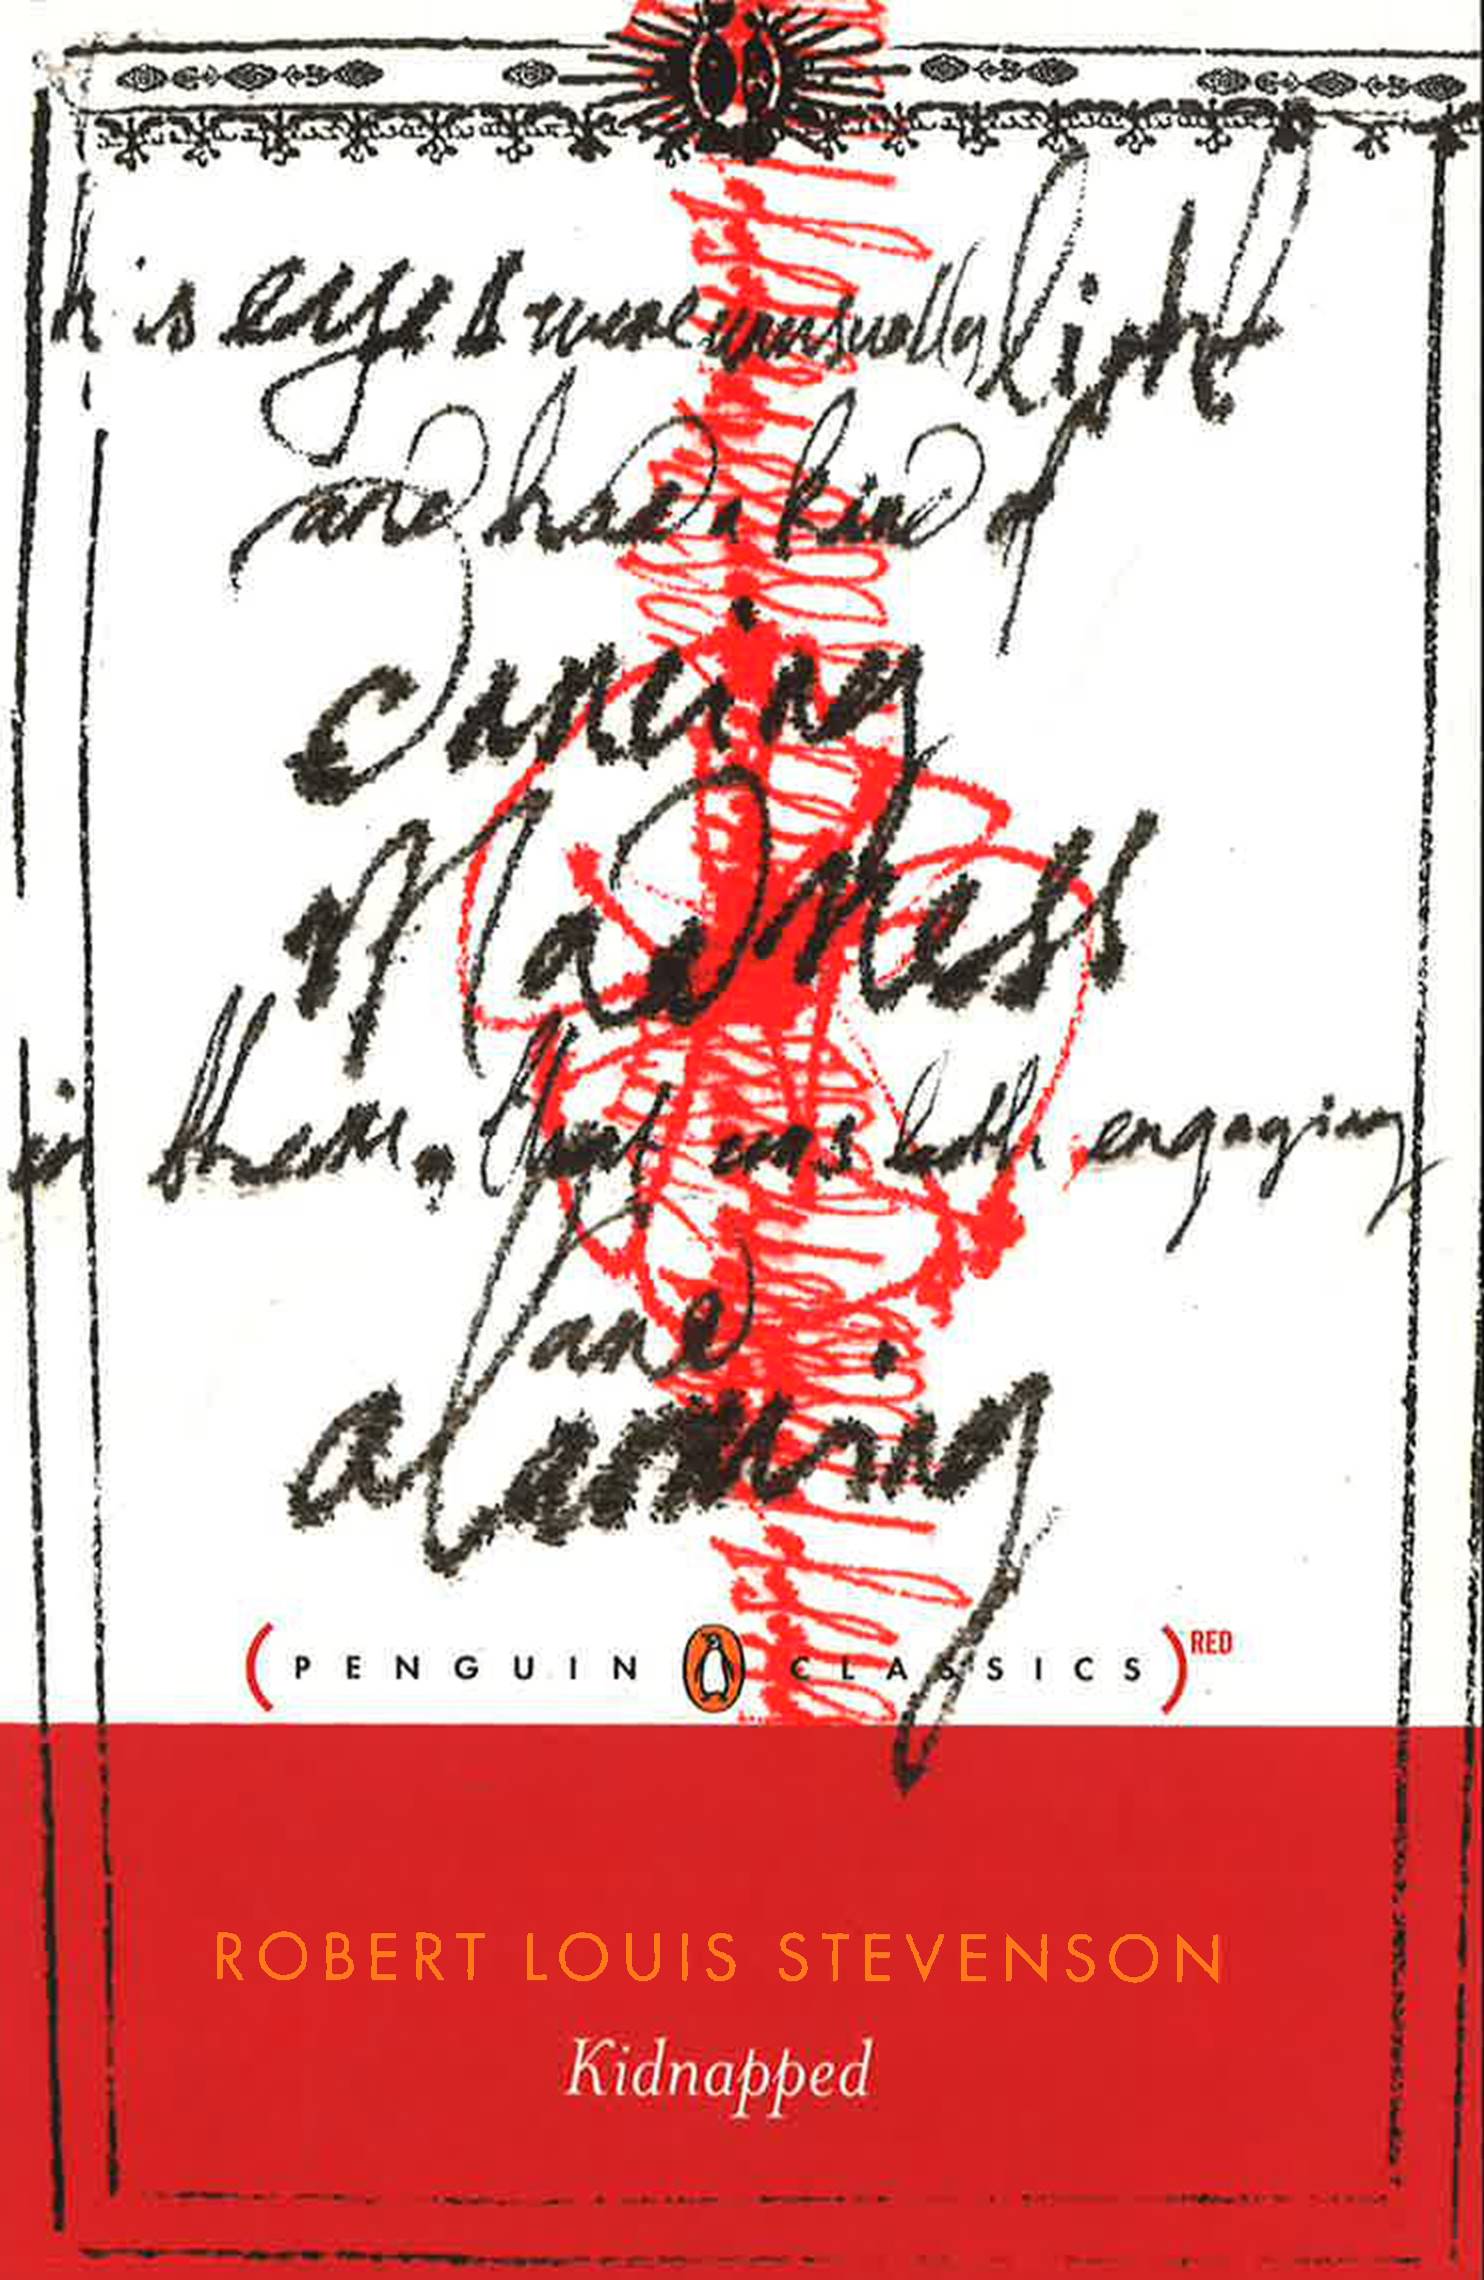 his eyes were unusually light
and had a kind of
dancing
Madness
in them, that was both engaging
and
alarming
(PENGUIN CLASSICS) RED
ROBERT LOUIS STEVENSON
Kidnapped